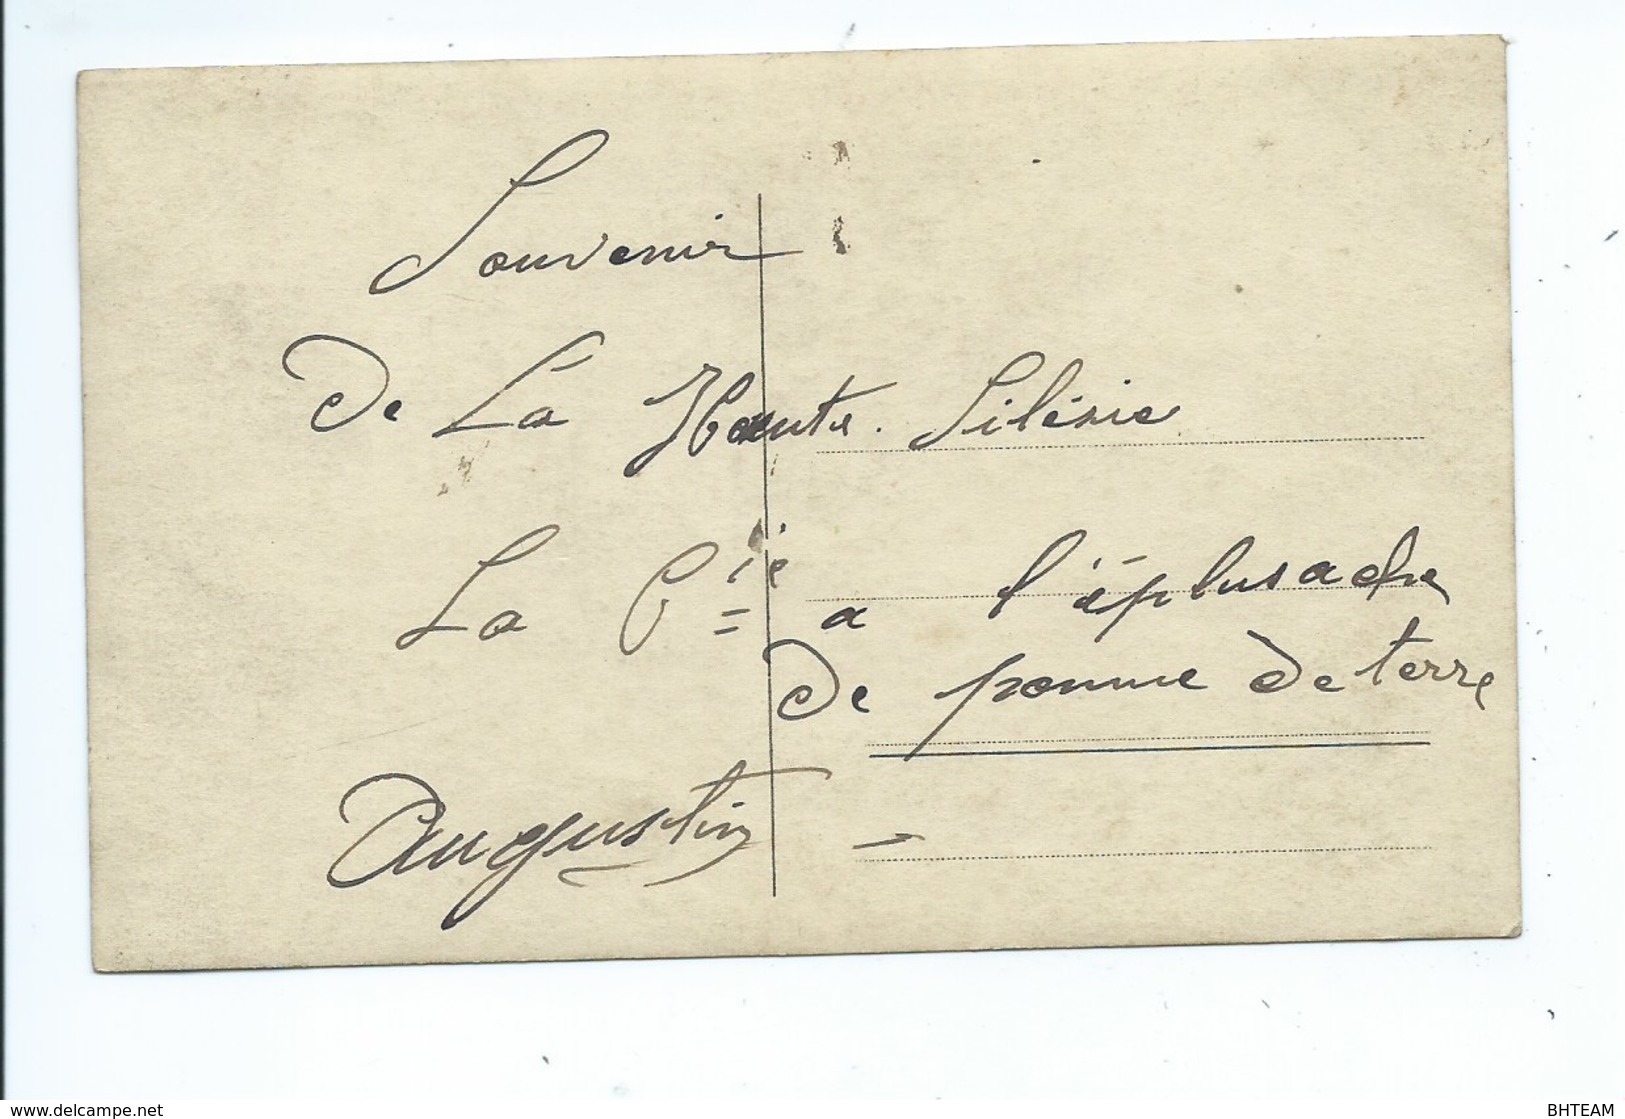 Souvenir
De La Haute. Silésie
La Cie a l'éplusache
De pomme De terre
Augustin
www.delcampe.net
BHTEAM